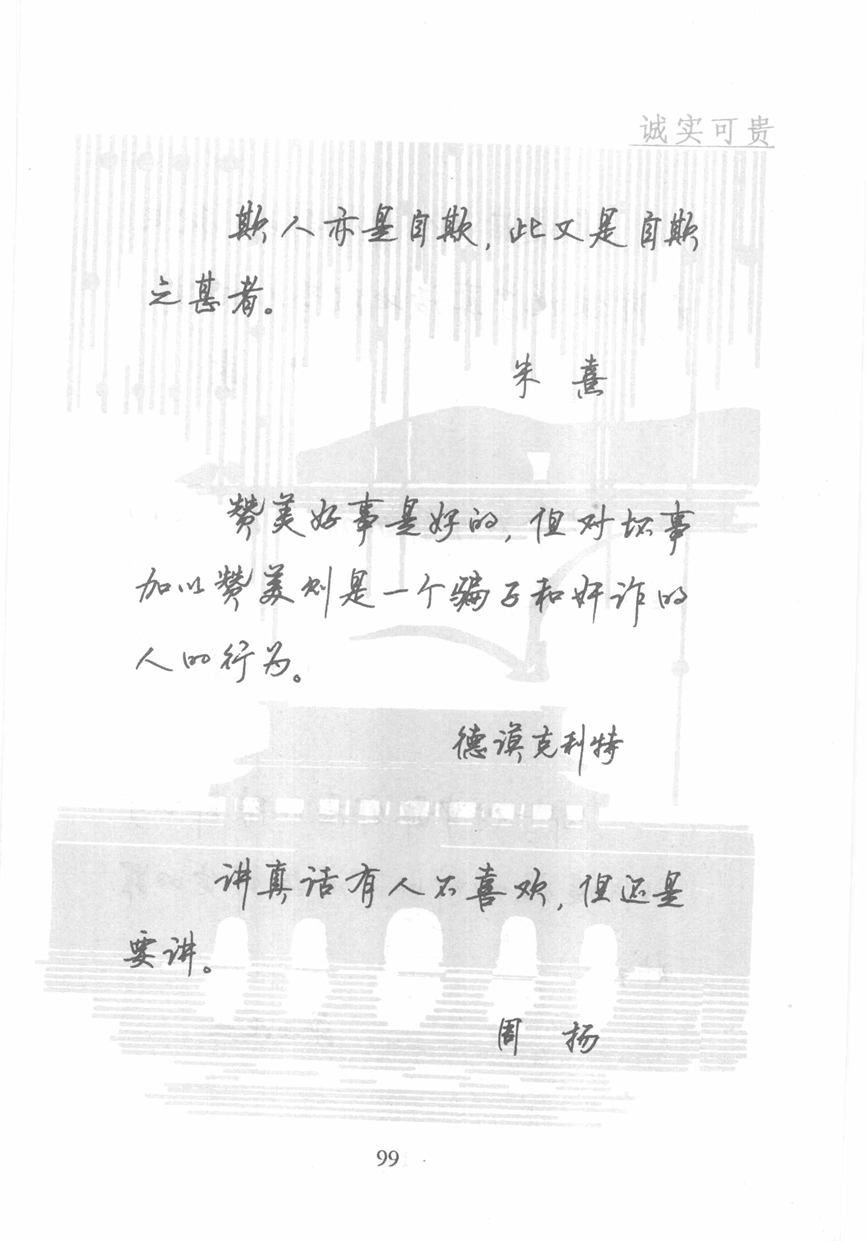 诚实可贵
欺人亦是自欺，此又是自欺
之甚者。
朱熹
赞美好事是好的，但对坏事
加以赞美则是一个骗子和奸诈的
人的行为。
德谟克利特
讲真话有人不喜欢，但还是
要讲。
周扬
99